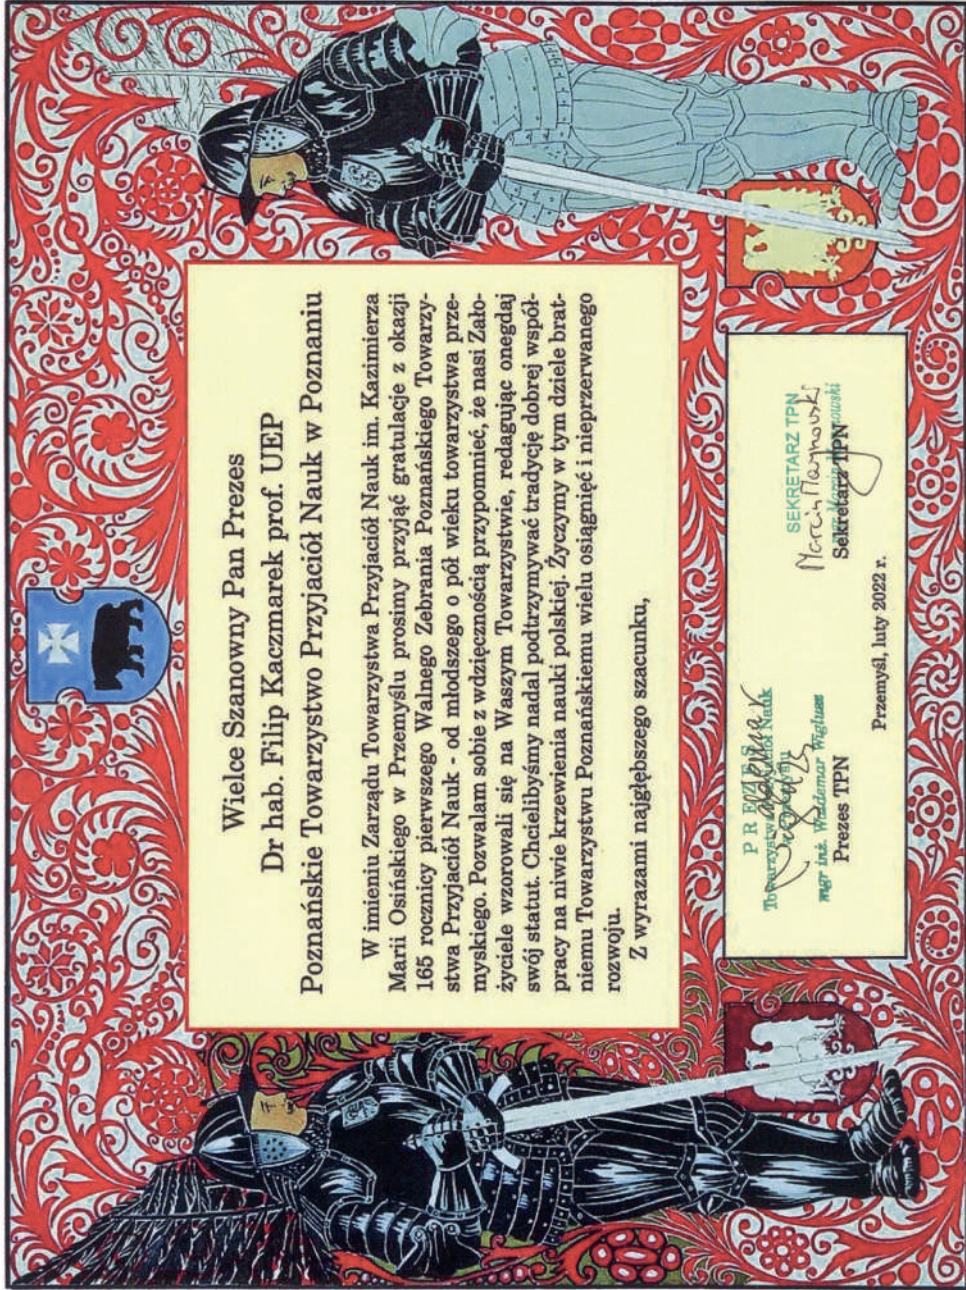 Wielce Szanowny Pan Prezes
Dr hab. Filip Kaczmarek prof. UEP
Poznańskie Towarzystwo Przyjaciół Nauk w Poznaniu
W imieniu Zarządu Towarzystwa Przyjaciół Nauk im. Kazimierza
Marii Osińskiego w Przemyślu prosimy przyjąć gratulacje z okazji
165 rocznicy pierwszego Walnego Zebrania Poznańskiego Towarzy-
stwa Przyjaciół Nauk - od młodszego o pół wieku towarzystwa prze-
myskiego. Pozwalam sobie z wdzięcznością przypomnieć, że nasi Zało-
życiele wzorowali się na Waszym Towarzystwie, redagując onegdaj
swój statut. Chcielibyśmy nadal podtrzymywać tradycję dobrej współ-
pracy na niwie krzewienia nauki polskiej. Życzymy w tym dziele brat-
niemu Towarzystwu Poznańskiemu wielu osiągnięć i nieprzerwanego
rozwoju.
Z wyrazami najgłębszego szacunku,
PREZES
Towarzystwa Przyjaciół Nauk
w Przemyślu
mgr inż. Waldemar Wiglusz
Prezes TPN
SEKRETARZ TPN
Marcin Marynowski
mgr Marcin Marynowski
Sekretarz TPN
Przemyśl, luty 2022 r.